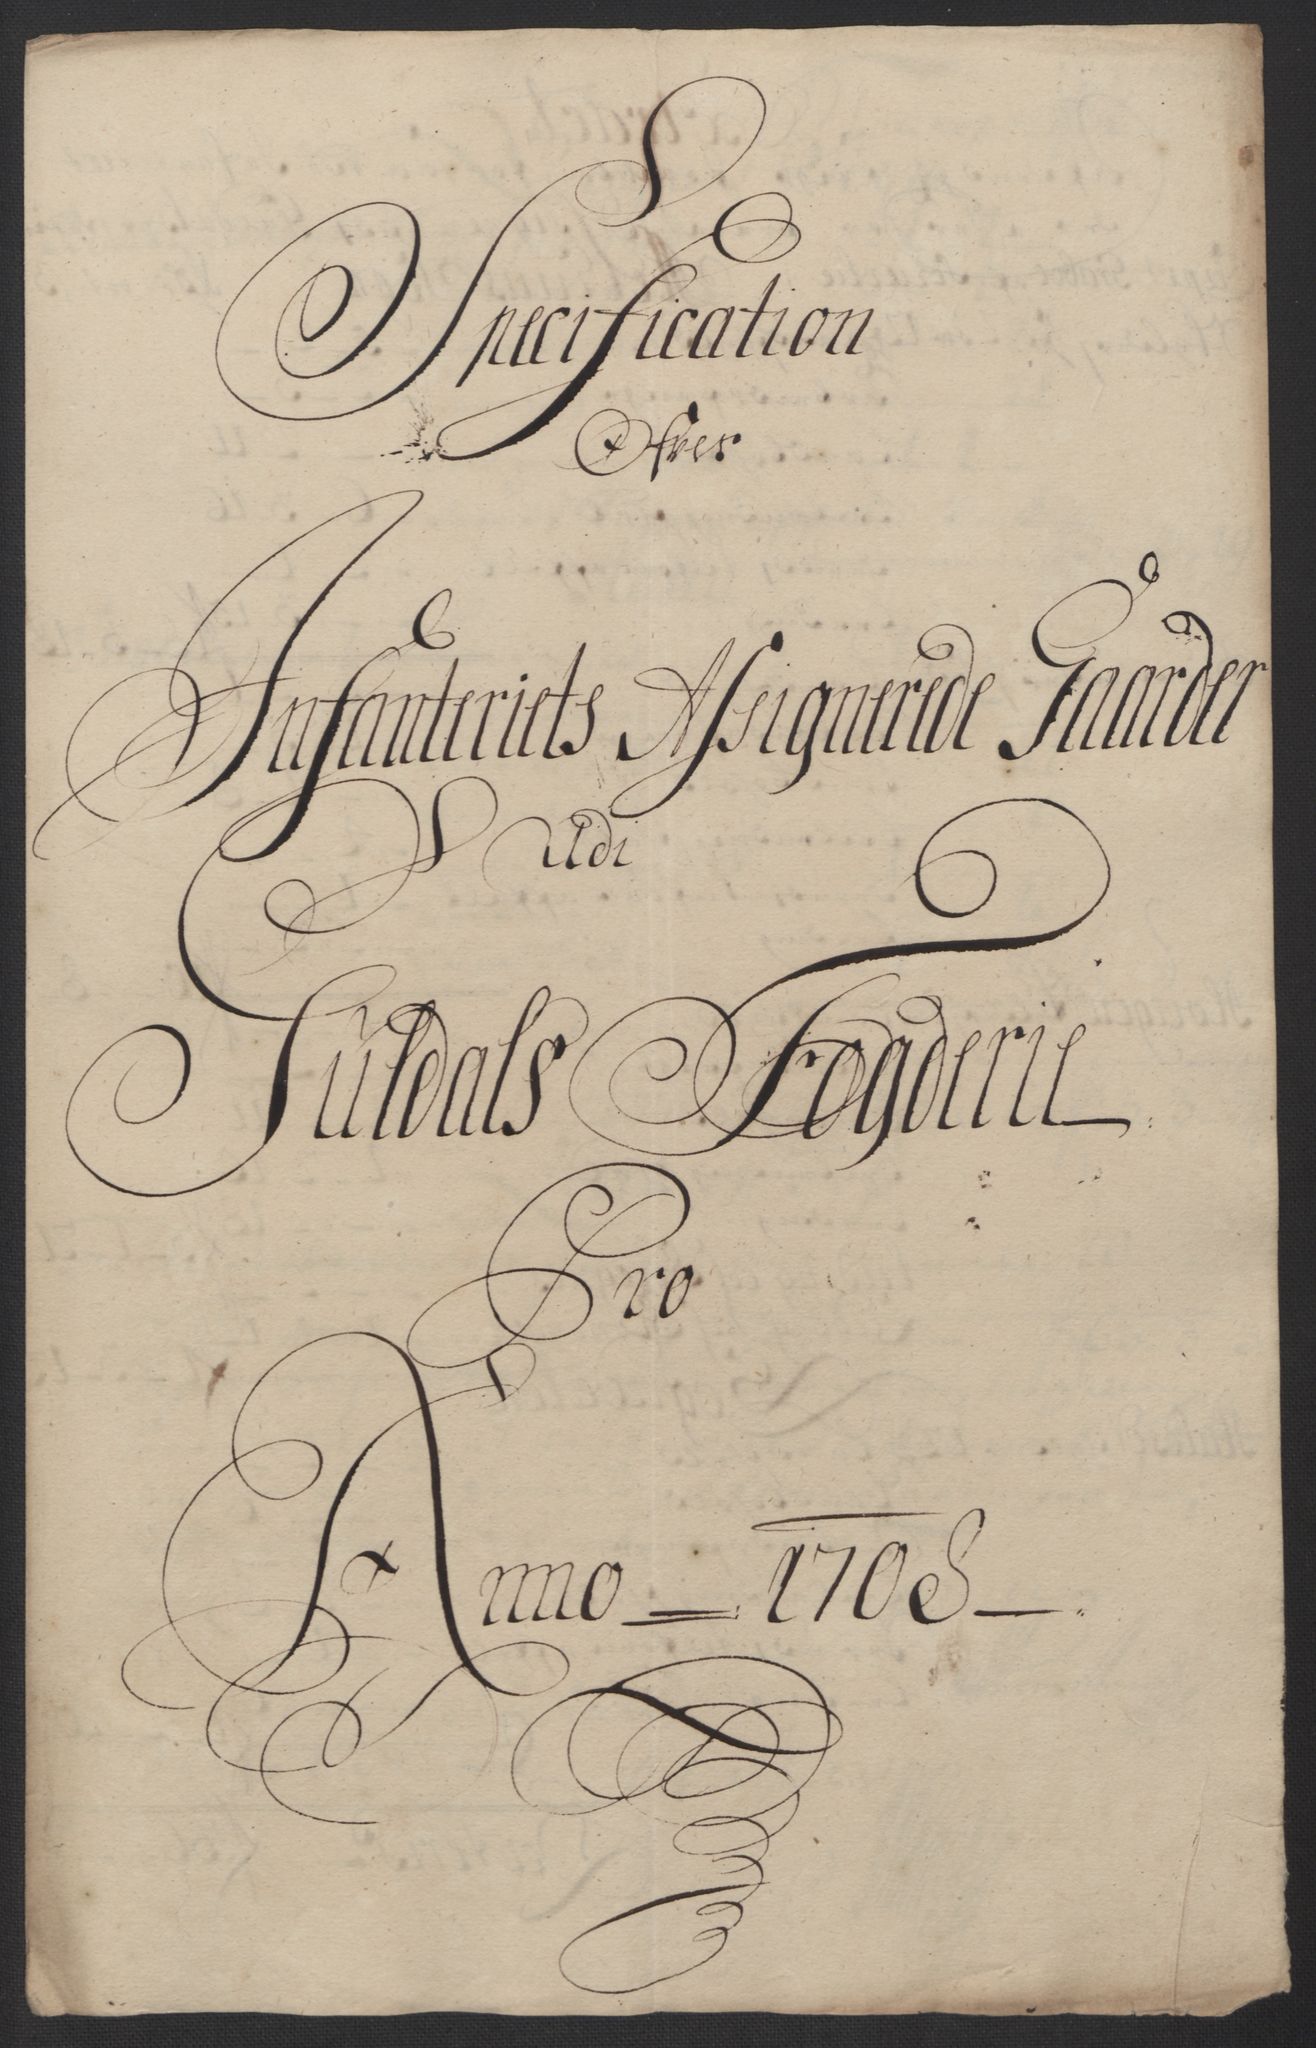 Specification
Ofver
Infanteriets Assignerede Gaarder
Udi
Suldals Fogderie
Pro
Anno 1708